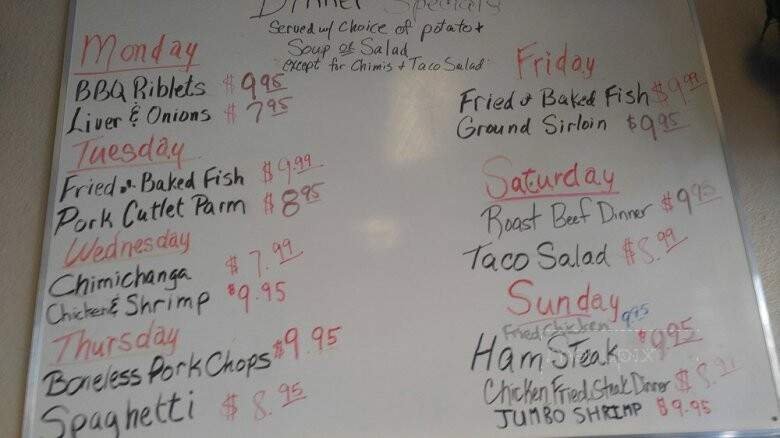 Dinner Specials
Served w/ choice of potato +
Soup or Salad
"except for Chimis + Taco Salad"
Monday
BBQ Riblets $9.95
Liver & Onions $7.95
Tuesday
Fried or Baked Fish $9.99
Pork Cutlet Parm $8.95
Wednesday
Chimichanga $7.99
Chicken & Shrimp $9.95
Thursday
Boneless Pork Chops $9.95
Spaghetti $8.95
Friday
Fried or Baked Fish $9.99
Ground Sirloin $9.95
Saturday
Roast Beef Dinner $9.95
Taco Salad $8.99
Sunday
Fried Chicken 9.95
Ham Steak $9.95
Chicken Fried Steak Dinner $8.99
JUMBO SHRIMP $9.95